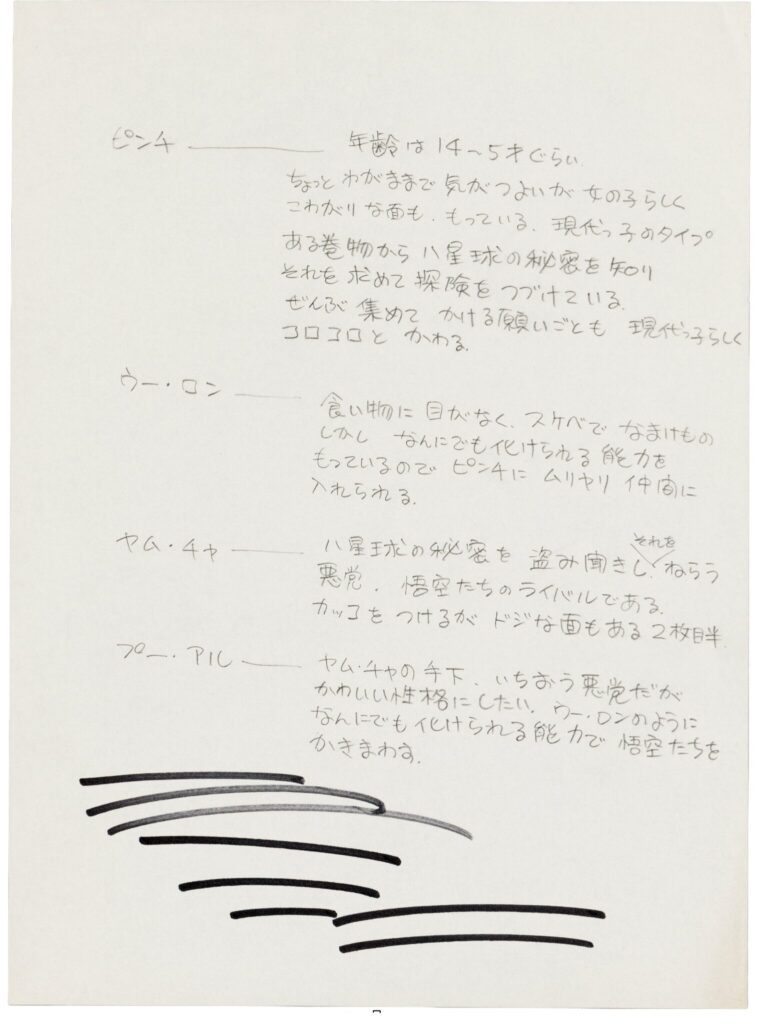 ピンチ ―― 年齢は14〜5才ぐらい.
ちょっと わがままで 気がつよいが 女の子らしく
こわがりな面も、もっている、現代っ子のタイプ
ある巻物から 八星球の秘密を知り
それを求めて 探険を つづけている.
ぜんぶ 集めて かける願いごとも 現代っ子らしく
コロコロと かわる.
ウー・ロン ―― 食い物に目がなく、スケベで なまけもの
しかし なんにでも化けられる能力を
もっているので ピンチに ムリヤリ 仲間に
入れられる.
それを
ヤム・チャ ―― 八星球の秘密を 盗み聞きし、ねらう
悪党、悟空たちのライバルである.
カッコをつけるが ドジな面もある 2枚目半.
プー・アル ―― ヤム・チャの手下、いちおう悪党だが
かわいい性格にしたい、ウー・ロンのように
なんにでも化けられる能力で 悟空たちを
かきまわす.